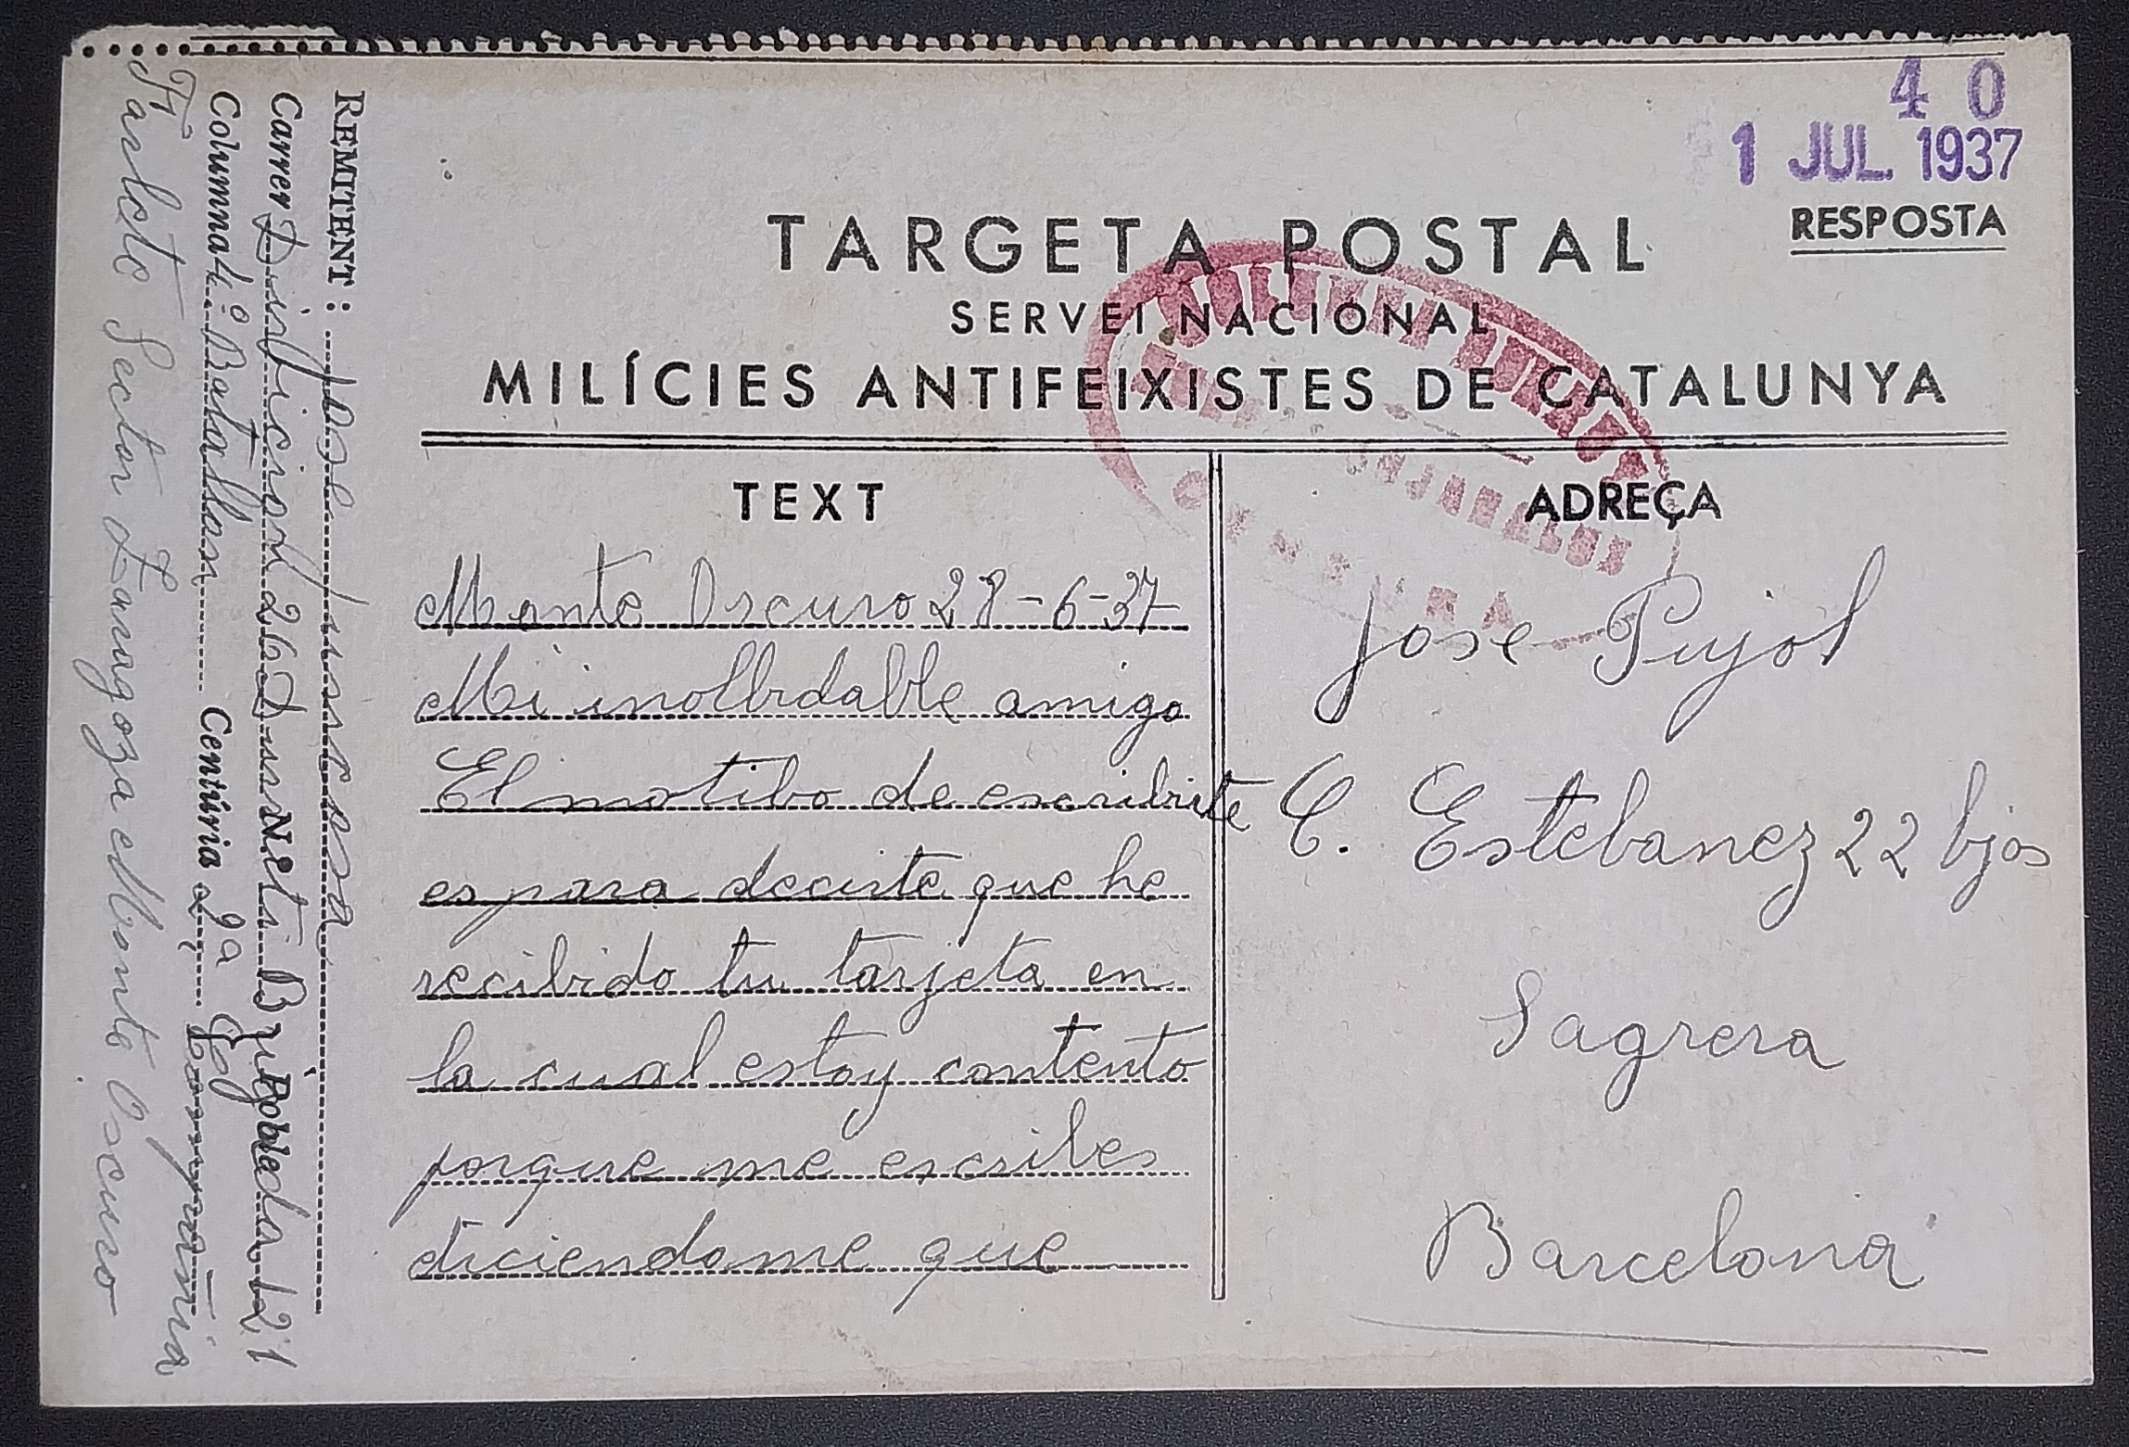 4 0
1 JUL. 1937
RESPOSTA
TARGETA POSTAL
SERVEI NACIONAL
MILÍCIES ANTIFEIXISTES DE CATALUNYA
TEXT
Monte Oscuro 28-6-37
Mi inolbidable amigo
El motibo de escribirte
es para decirte que he
recibido tu tarjeta en
la cual estoy contento
porque me escribes
diciendome que
ADREÇA
Jose Pujol
C. Estebanez 22 bjos
Sagrera
Barcelona
CENSURA
REMITENT: Jose
Carrer Division 26 Durruti B
Columna 4º Batallon Centúria 2ª Compañia
Farlete Sector Zaragoza Monte Oscuro